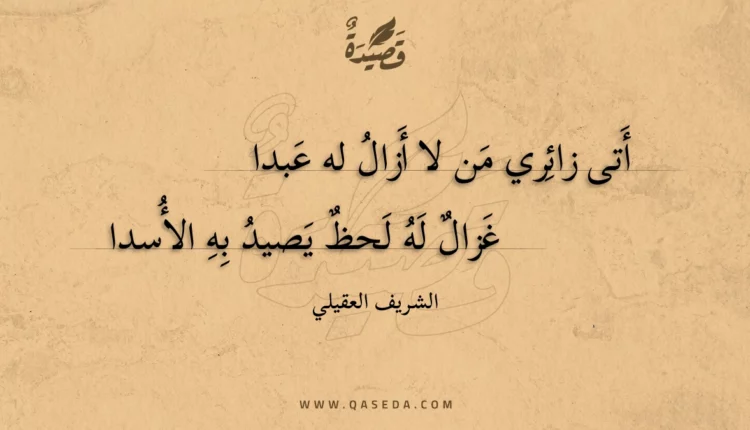 قَصِيدَةٌ
أَتى زائِري مَن لا أَزالُ له عَبدا
غَزالٌ لَهُ لَحظٌ يَصيدُ بِهِ الأُسدا
الشريف العقيلي
WWW.QASEDA.COM